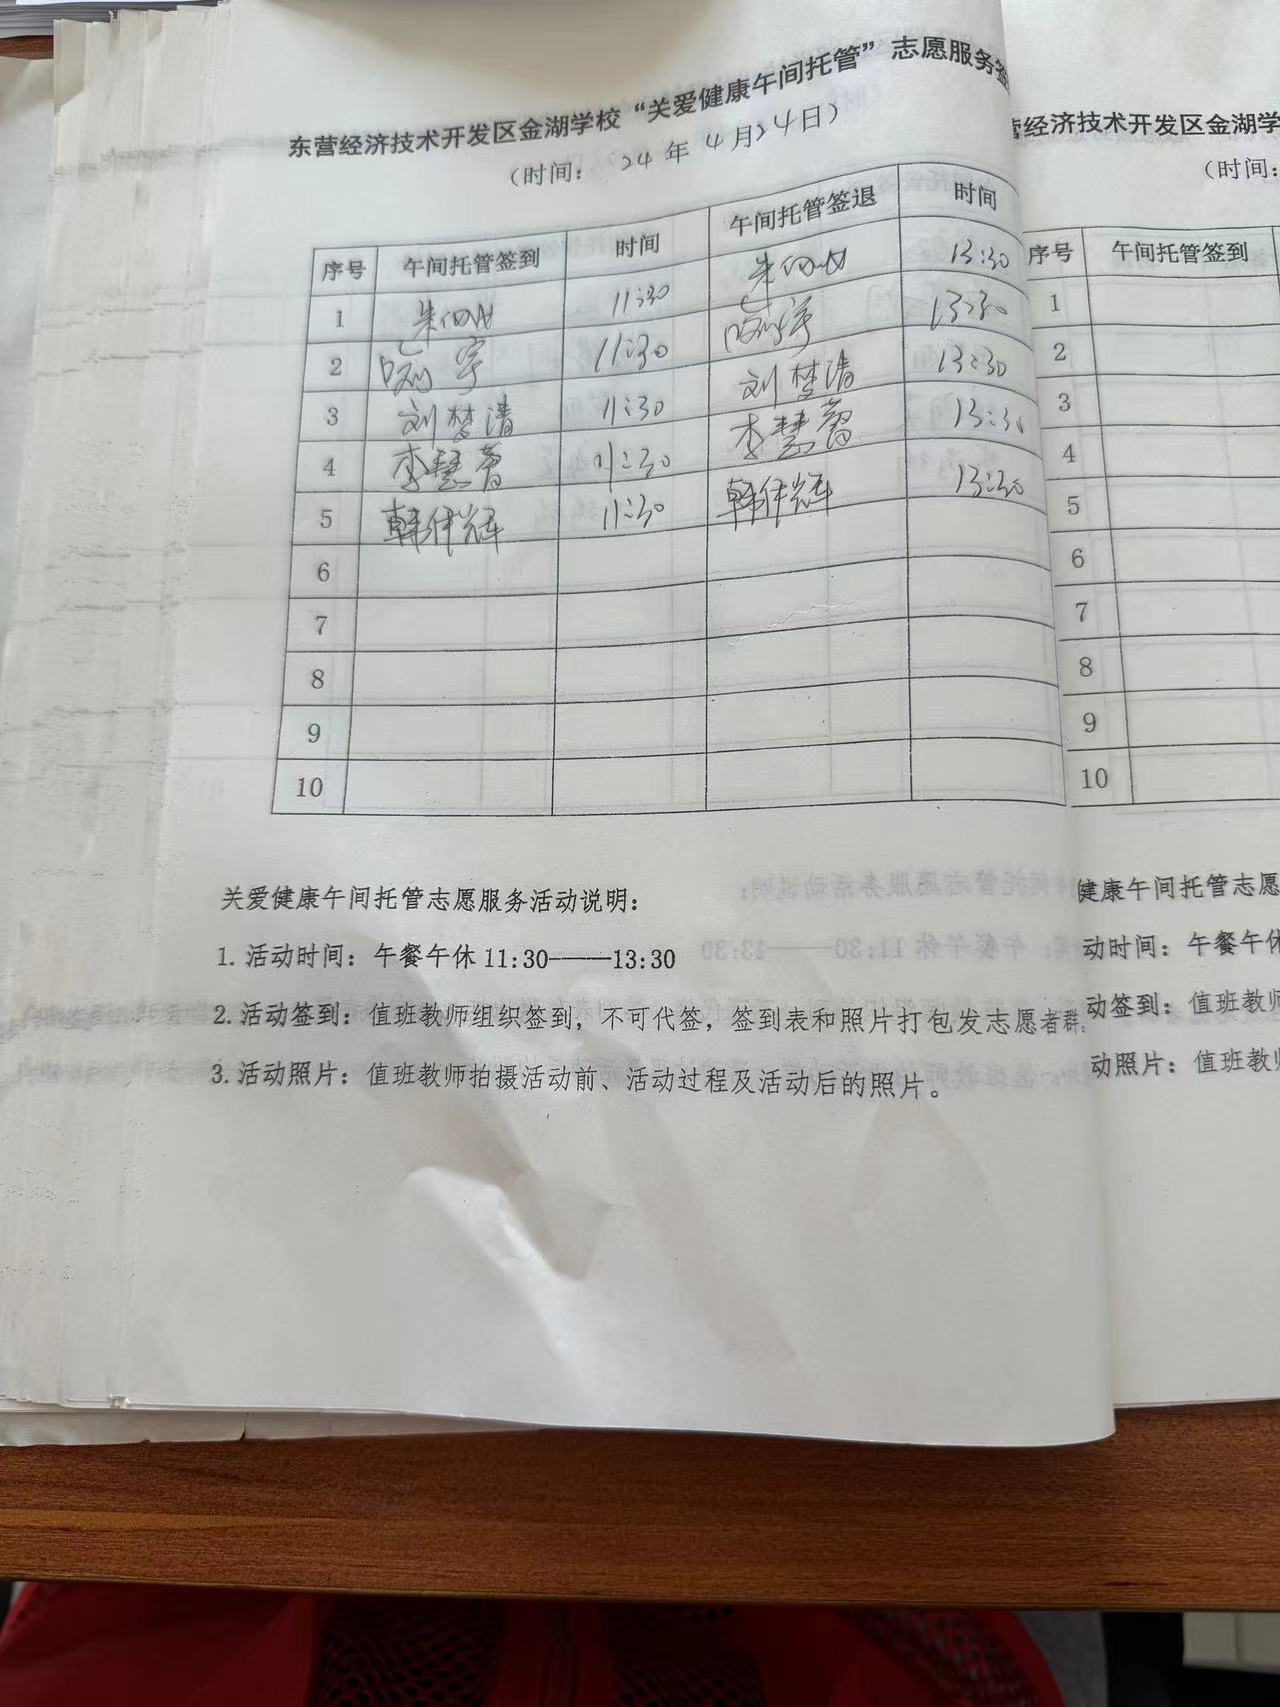 东营经济技术开发区金湖学校“关爱健康午间托管”志愿服务签
（时间： 24年4月24日）
序号 午间托管签到 时间 午间托管签退 时间
1 11:30 13:30
2 11:30 13:30
3 刘梦清 11:30 刘梦清 13:30
4 李慧蕾 11:30 李慧蕾 13:30
5 韩伟辉 11:30 韩伟辉 13:30
6
7
8
9
10
关爱健康午间托管志愿服务活动说明：
1. 活动时间：午餐午休 11:30——13:30
2. 活动签到：值班教师组织签到，不可代签，签到表和照片打包发志愿者群。
3. 活动照片：值班教师拍摄活动前、活动过程及活动后的照片。
营经济技术开发区金湖学
（时间：
序号 午间托管签到
1
2
3
4
5
6
7
8
9
10
健康午间托管志愿
动时间：午餐午休
动签到：值班教师
动照片：值班教师